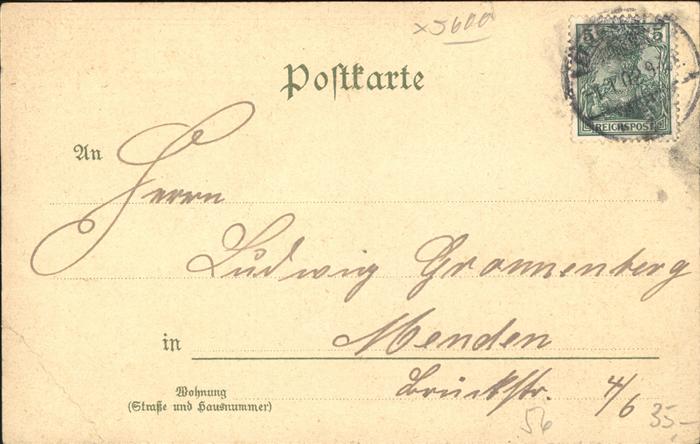 x5600
5 5
Postkarte
REICHSPOST
An
Herrn
Ludwig Gronnenberg
in Menden
Wohnung
(Straße und Hausnummer)
Brückstr. 4/6
56 35-